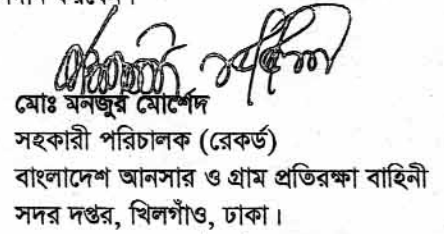 মোঃ মনজুর মোর্শেদ
সহকারী পরিচালক (রেকর্ড)
বাংলাদেশ আনসার ও গ্রাম প্রতিরক্ষা বাহিনী
সদর দপ্তর, খিলগাঁও, ঢাকা।